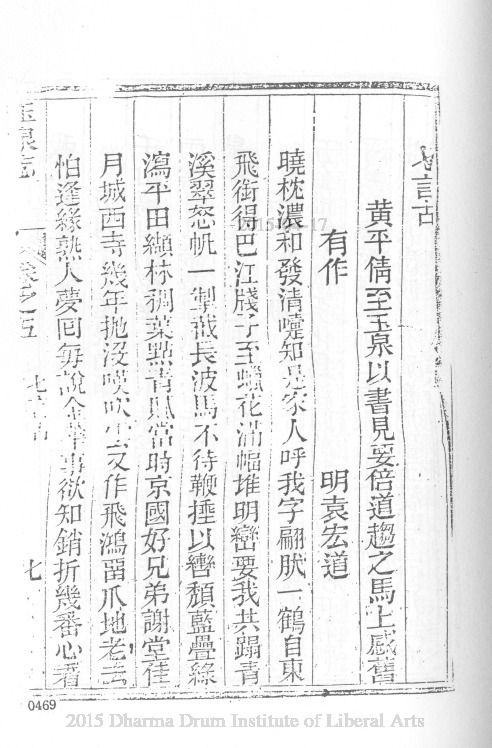 言古
黃平倩至玉泉以書見要倍道趨之馬上感舊
有作 明袁宏道
曉枕濃和發清嚏知是家人呼我字翩肰一鶴自東
飛銜得巴江牋子至蠟花滿幅堆明巒要我共蹋青
溪翠怒帆一掣截長波馬不待鞭捶以轡頹藍疊綠
瀉平田纈林稠葉點青當時京國好兄弟謝堂佳
月城西寺幾年拋沒嘆吹雲又作飛鴻畱爪地老去
怕逢緣熟人夢回每說金華事欲知銷折幾番心看
玉泉志 卷之五 七
0469
2015 Dharma Drum Institute of Liberal Arts